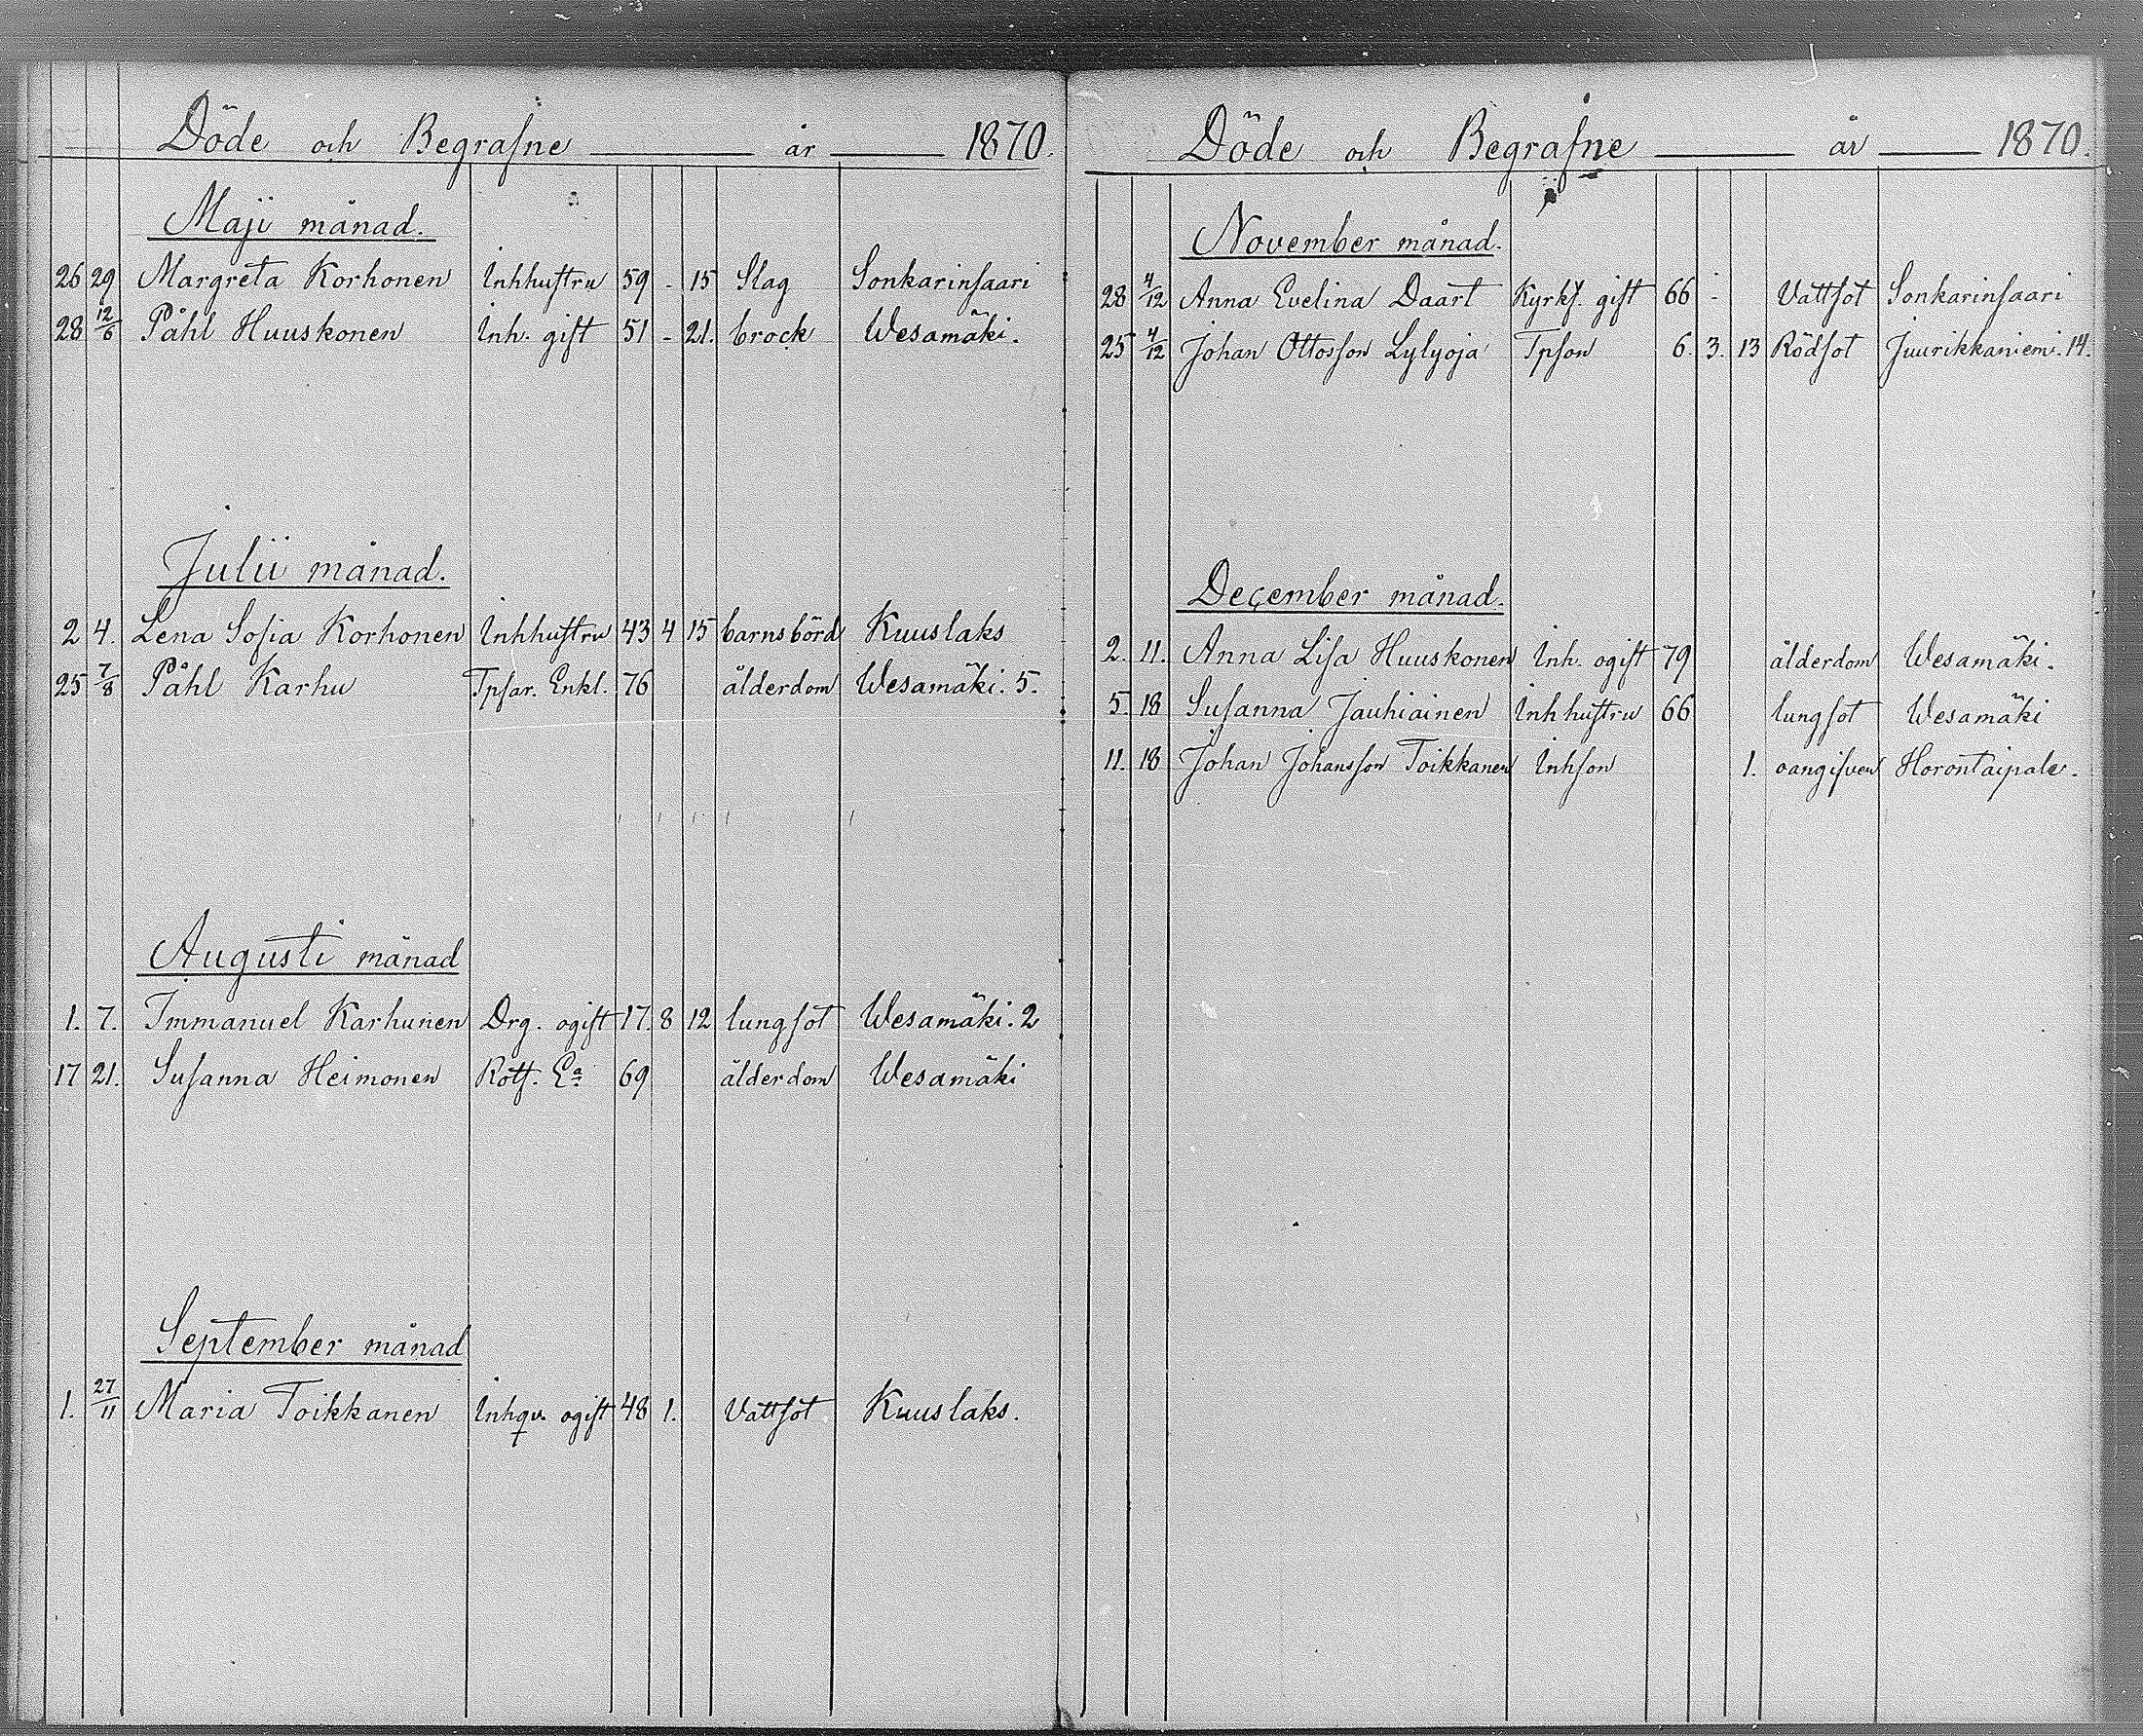 Döde och Begrafne år 1870.
Maji månad.
26 29 Margreta Korhonen Inhhustru 59 - 15 Slag Sonkarinsaari
28 12/6 Påhl Huuskonen Inh. gift 51 - 21. brock Wesamäki.
Julii månad.
2 4. Lena Sofia Korhonen Inhhustru 43 4 15 barnsbörd Kuuslaks
25 7/8 Påhl Karhu Tpsar. Enkl. 76 ålderdom Wesamäki. 5.
Augusti månad
1. 7. Immanuel Karhunen Drg. ogift 17. 8 12 lungsot Wesamäki. 2
17 21. Susanna Heimonen Rotf. Ea 69 ålderdom Wesamäki
September månad
1. 27/11 Maria Toikkanen Inhqv. ogift 48 1. Vattsot Kuuslaks.
Döde och Begrafne år 1870.
November månad.
28 4/12 Anna Evelina Daart Kyrkf. gift 66 - Vattsot Sonkarinsaari
25 4/12 Johan Ottosson Lylyoja Tpson 6. 3. 13 Rödsot Juurikkaniemi. 14.
December månad.
2. 11. Anna Lisa Huuskonen Inh. ogift 79 ålderdom Wesamäki.
5. 18 Susanna Jauhiainen Inhhustru 66 lungsot Wesamäki
11. 18 Johan Johansson Toikkanen Inhson 1. oangifven Horontaipale.